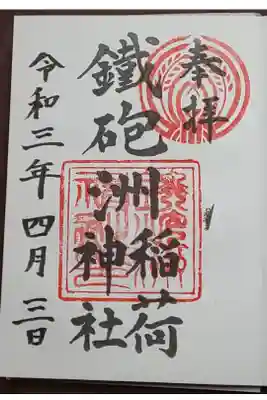 奉拝
鐵砲洲稲荷神社
令和三年四月三日